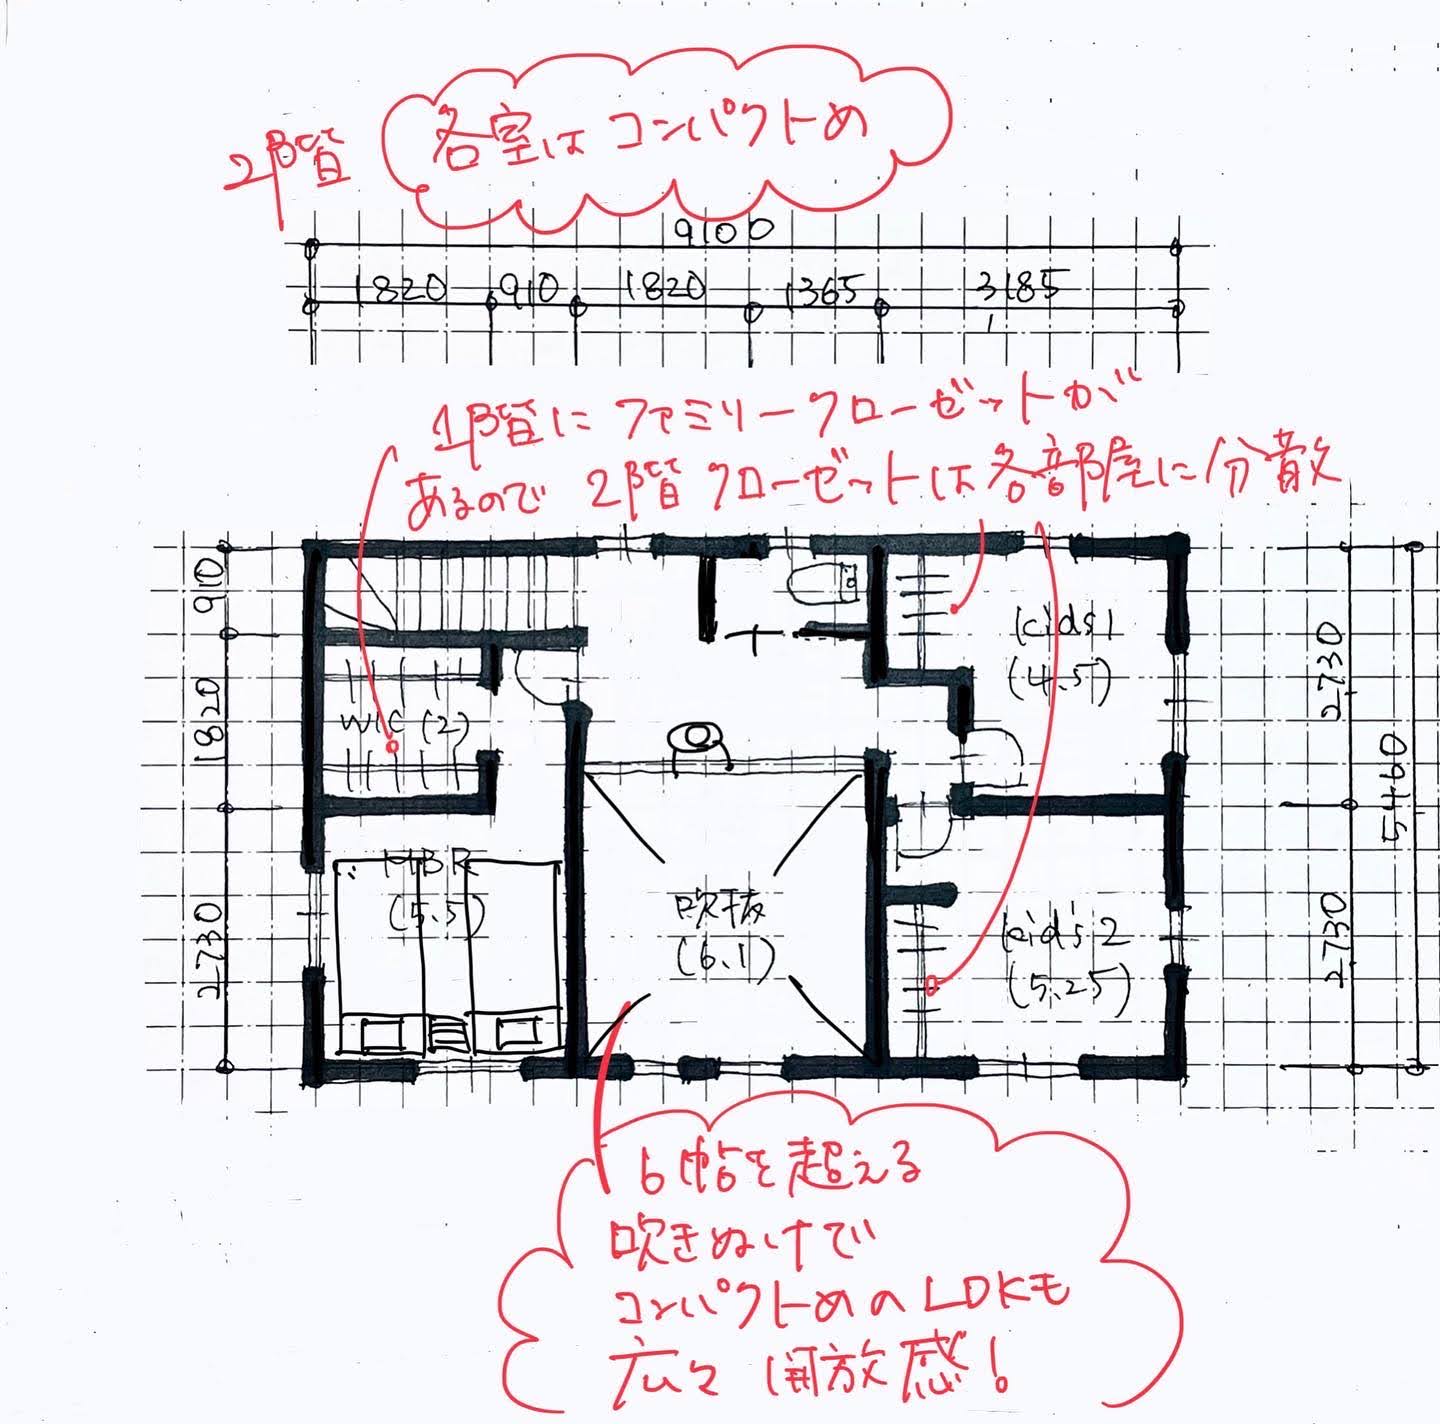 2階
各室はコンパクトめ
9100
1820 910 1820 1365 3185
1階にファミリークローゼットが
あるので 2階クローゼットは各部屋に分散
910
1820
2730
WIC (2)
MBR
(5.5)
吹抜
(6.1)
kids1
(4.5)
kids2
(5.25)
2730
2730
5460
6帖を超える
吹きぬけで
コンパクトめのLDKも
広々開放感！